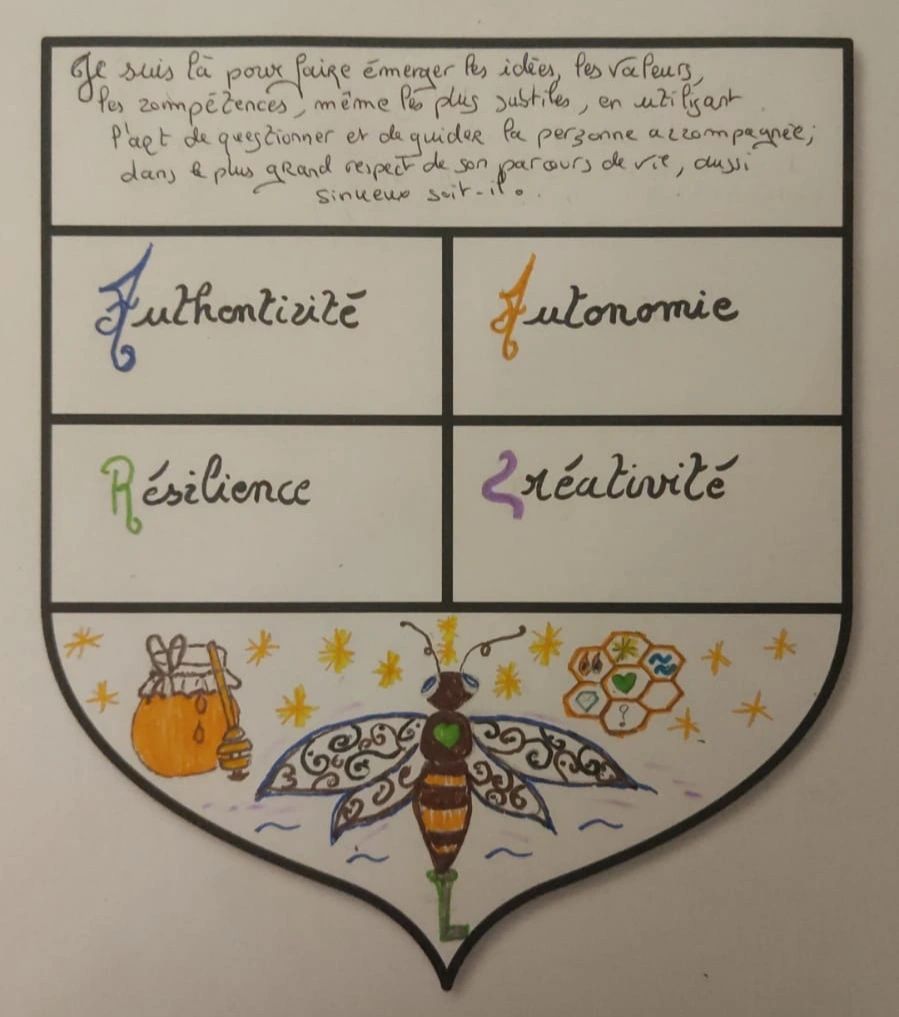 Je suis là pour faire émerger les idées, les valeurs,
les compétences, même les plus subtiles, en utilisant
l'art de questionner et de guider la personne accompagnée;
dans le plus grand respect de son parcours de vie, aussi
sinueux soit-il.
Authenticité
Autonomie
Résilience
Créativité
?